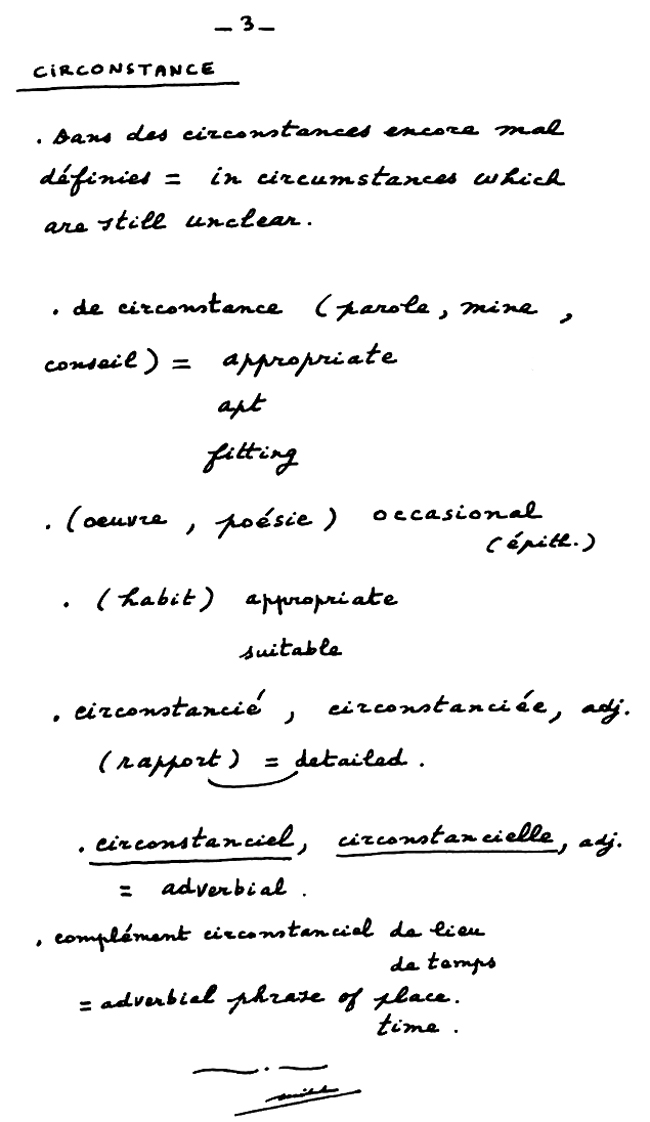 - 3 -
CIRCONSTANCE
. Dans des circonstances encore mal
définies = in circumstances which
are still unclear.
. de circonstance (parole, mine,
conseil) = appropriate
apt
fitting
. (oeuvre, poésie) occasional
(épith.)
. (habit) appropriate
suitable
. circonstancié, circonstanciée, adj.
(rapport) = detailed.
. circonstanciel, circonstancielle, adj.
= adverbial.
. complément circonstanciel de lieu
de temps
= adverbial phrase of place.
time.